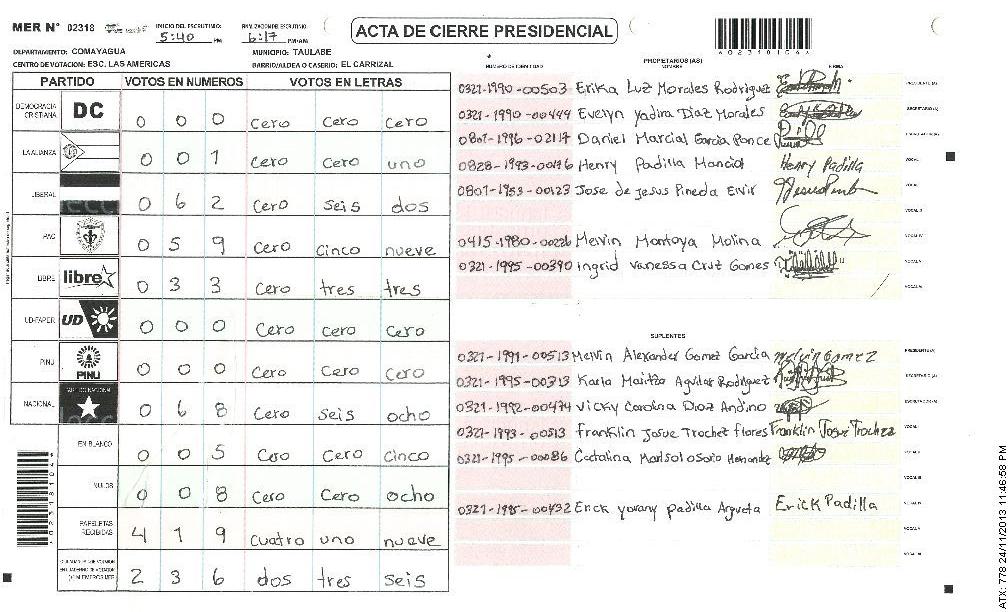 MER N° 02318
INICIO DEL ESCRUTINIO: 5:40 PM
FINALIZACION DEL ESCRUTINIO: 6:17 PM/AM
ACTA DE CIERRE PRESIDENCIAL
DEPARTAMENTO: COMAYAGUA
MUNICIPIO: TAULABE
CENTRO DE VOTACION: ESC. LAS AMERICAS
BARRIO/ALDEA O CASERIO: EL CARRIZAL
PARTIDO VOTOS EN NUMEROS VOTOS EN LETRAS
DEMOCRACIA CRISTIANA DC 0 0 0 cero cero cero
LA ALIANZA 0 0 1 cero cero uno
LIBERAL 0 6 2 cero seis dos
PAC 0 5 9 cero cinco nueve
LIBRE libre 0 3 3 cero tres tres
UD-FAPER UD 0 0 0 cero cero cero
PINU PINU 0 0 0 cero cero cero
NACIONAL 0 6 8 cero seis ocho
EN BLANCO 0 0 5 cero cero cinco
NULOS 0 0 8 cero cero ocho
PAPELETAS RECIBIDAS 4 1 9 cuatro uno nueve
2 3 6 dos tres seis
NUMERO DE IDENTIDAD PROPIETARIOS (AS) NOMBRE FIRMA
0321-1990-00503 Erika Luz Morales Rodriguez PRESIDENTE (A)
0321-1990-00449 Evelyn Yadira Diaz Morales SECRETARIO (A)
0801-1996-02117 Daniel Marcial Garcia Ponce
0828-1993-00176 Henry Padilla Mancia Henry Padilla VOCAL
0801-1953-00123 Jose de Jesus Pineda VOCAL
0415-1980-00226 Melvin Montoya Molina
0321-1995-00390 Ingrid Vanessa Cruz Gomes
SUPLENTES
0321-1991-00513 Melvin Alexander Gomez Garcia melvin Gomez PRESIDENTE (A)
0321-1995-00313 Karla Maritza Aguilar Rodriguez SECRETARIO (A)
0321-1992-00474 Vicky Carolina Diaz Andino ESCRUTADOR (A)
0321-1993-00513 Franklin Josue Trochez flores Franklin Josue Trochez VOCAL
0321-1995-00086 Catalina Marisol osorio Hernandez
0321-1985-00432 Erick yovany padilla Argueta Erick Padilla
ATX: 778 24/11/2013 11:46:58 PM